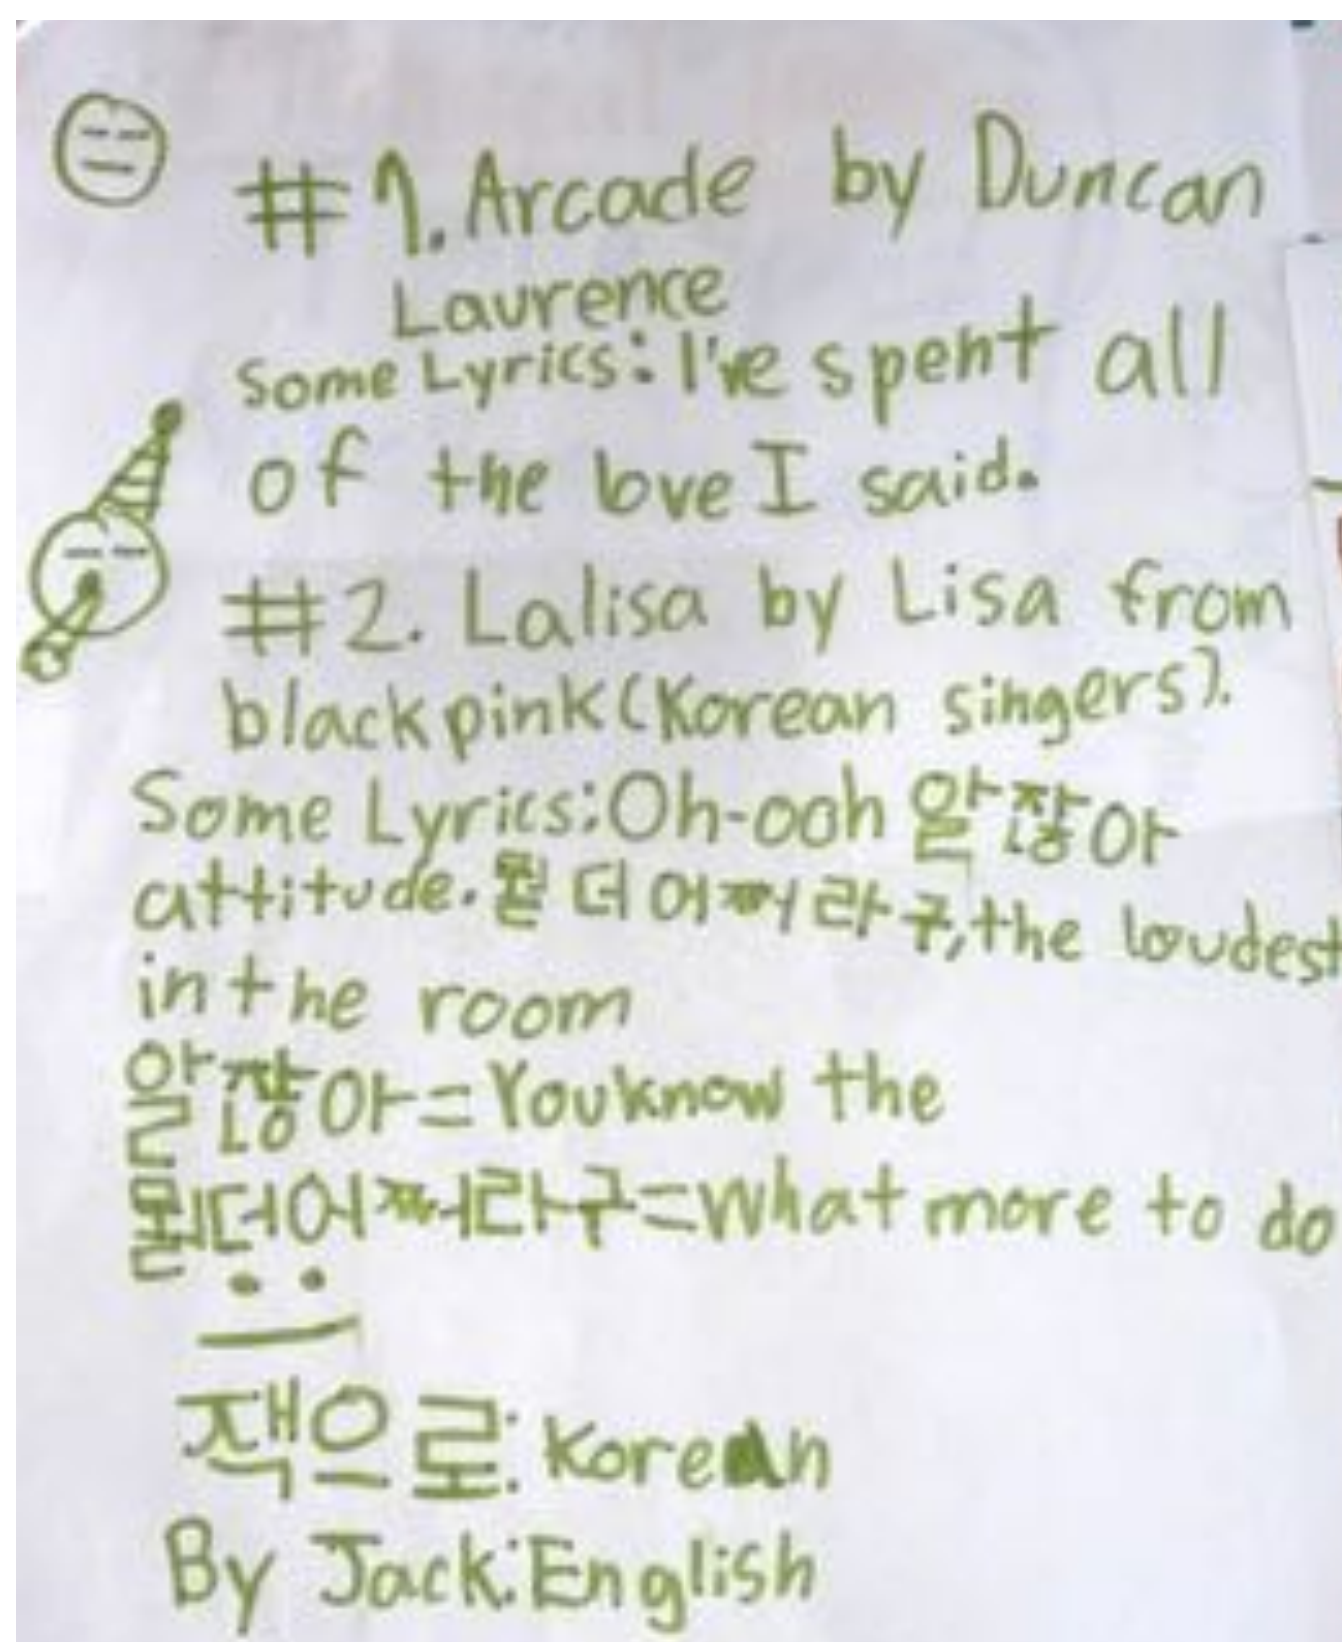 #1. Arcade by Duncan
Laurence
Some Lyrics: I've spent all
of the love I said.
#2. Lalisa by Lisa from
blackpink (Korean singers).
Some Lyrics: Oh-ooh 알잖아
attitude. 뭘 더 어쩌라구, the loudest
in the room
알잖아 = You know the
뭘더어쩌라구 = What more to do
잭으로: Korean
By Jack: English